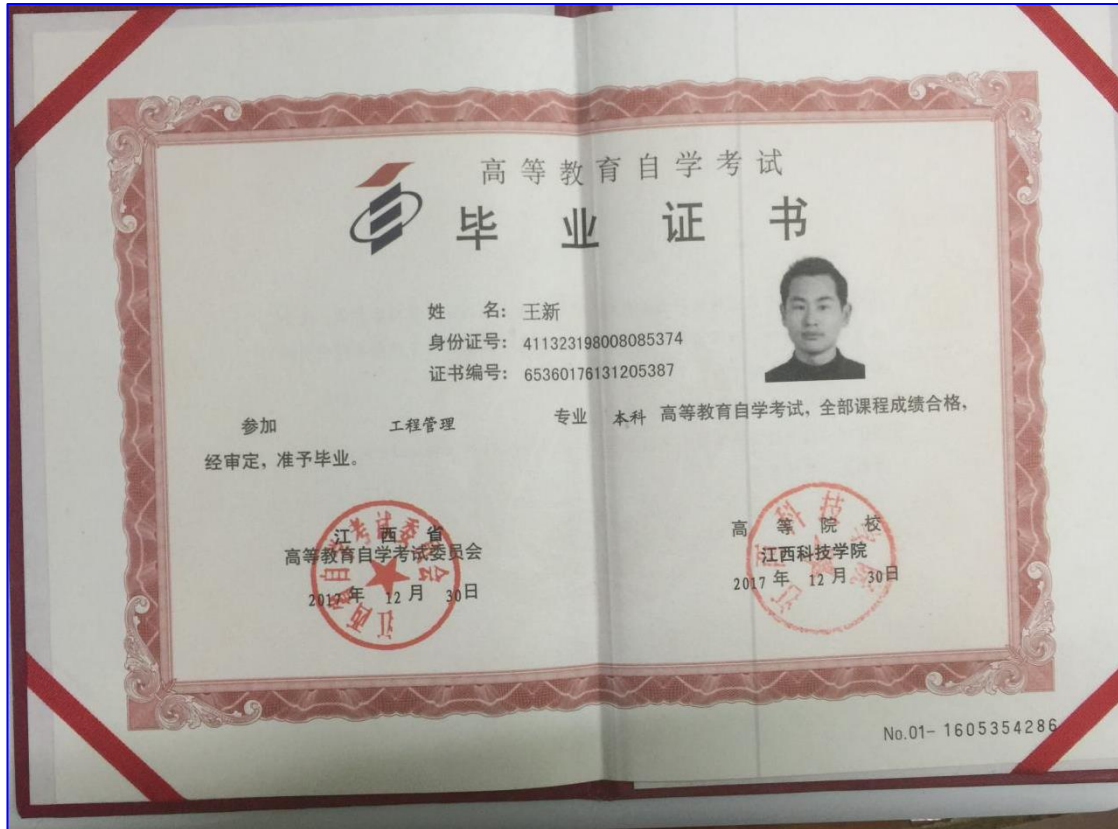 高等教育自学考试
毕业证书
姓 名：王新
身份证号：411323198008085374
证书编号：65360176131205387
参加 工程管理 专业 本科 高等教育自学考试，全部课程成绩合格，
经审定，准予毕业。
江西省
高等教育自学考试委员会
2017年 12月 30日
高等院校
江西科技学院
2017年 12月 30日
No.01- 1605354286